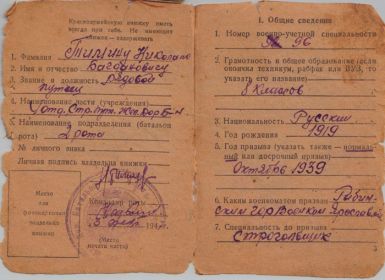 Красноармейскую книжку иметь
всегда при себе. Не имеющих
книжек — задерживать
1. Фамилия Тимину Николаю
2. Имя и отчество Багдановичу
3. Звание и должность Рядовой
путеец
4. Наименование части (учреждения)
Отд. Стр. Пут. Жел. Дор. Б-н
5. Наименование подразделения (батальон
рота) 2 рота
№ личного знака
Личная подпись владельца книжки
Место
для
фотокарточки
владельца
книжки
Командир роты
194
(Место
печати части)
I. Общие сведения
1. Номер военно-учетной специальности
96
2. Грамотность и общее образование (если
окончил техникум, рабфак или ВУЗ, то
указать его название)
8 классов
3. Национальность Русский
4. Год рождения 1919
5. Год призыва (указать также — нормаль-
ный или досрочный призыв)
Октябрь 1939
6. Каким военкоматом призван Рыбин-
ским гор военком Ярославской
7. Специальность до призыва
Строгольщик